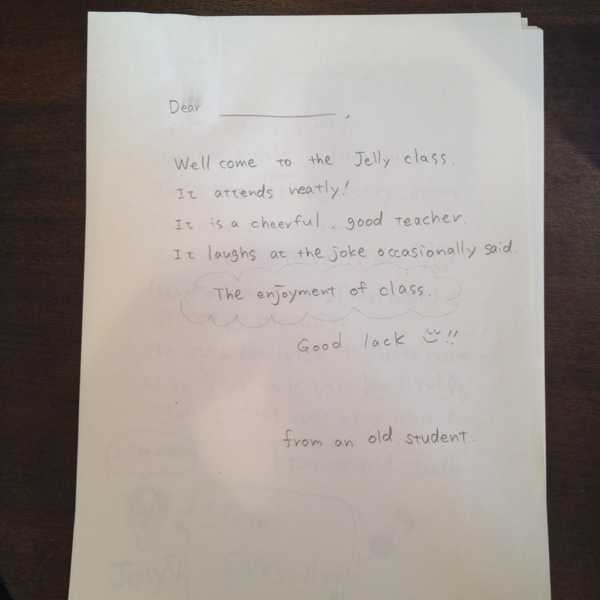 Dear ________,
Well come to the Jelly class.
It attends neatly!
It is a cheerful, good teacher.
It laughs at the joke occasionally said.
The enjoyment of class.
Good lack !!
from an old student.